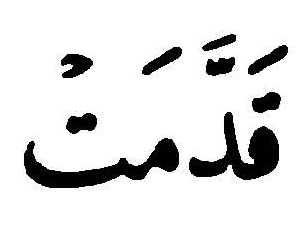 قَدَّمَتْ